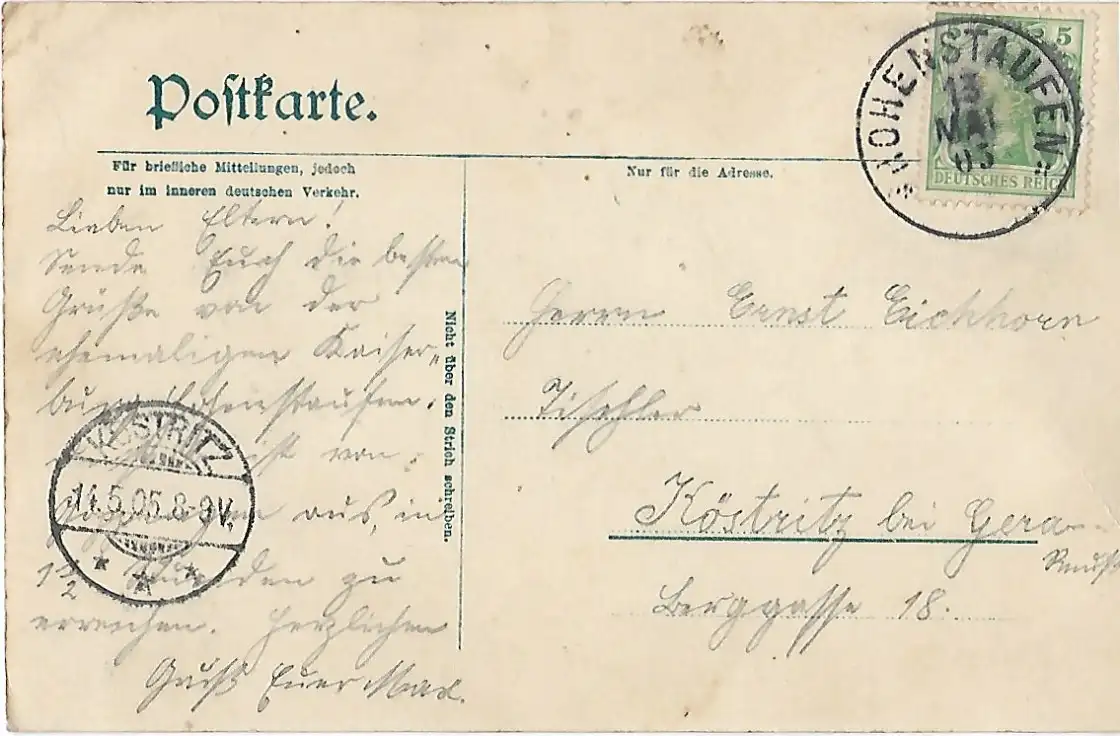 Postkarte.
Für briefliche Mitteilungen, jedoch
nur im inneren deutschen Verkehr.
Nur für die Adresse.
5
DEUTSCHES REICH
* HOHENSTAUFEN *
13
MAI
05
Lieben Eltern!
Sende Euch die besten
Grüße von der
ehemaligen Kaiser-
burg Hohenstaufen.
ist von
Göppingen aus, in
1 1/2 Stunden zu
erreichen. Herzlichen
Gruß Euer Max.
KÖSTRITZ
14.5.05.8-9V.
Nicht über den Strich schreiben.
Herrn Ernst Eichhorn
Tischler
Köstritz bei Gera-
Reuß
Berggasse 18.